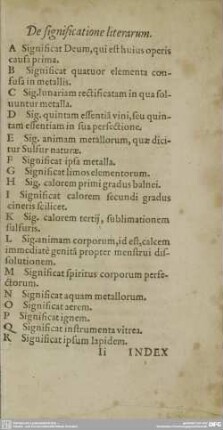 De significatione literarum.
A Significat Deum, qui est huius operis
causa prima.
B Significat quatuor elementa con-
fusa in metallis.
C Sig. lunariam rectificatam in qua sol-
uuntur metalla.
D Sig. quintam essentiā vini, seu quin-
tam essentiam in sua perfectione.
E Sig. animam metallorum, quæ dici-
tur Sulfur naturæ.
F Significat ipsa metalla.
G Significat limos elementorum.
H Sig. calorem primi gradus balnei.
I Significat calorem secundi gradus
cineris scilicet.
K Sig. calorem tertij, sublimationem
sulfuris.
L Sig. animam corporum, id est, calcem
immediatè genitā propter menstrui dis-
solutionem.
M Significat spiritus corporum perfe-
ctorum.
N Significat aquam metallorum.
O Significat aerem.
P Significat ignem.
Q Significat instrumenta vitrea.
R Significat ipsum lapidem.
Ii INDEX